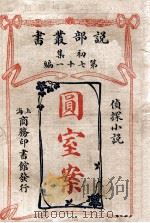 說部叢書
初集
第七十一編
偵探小說
圓室案
上海
商務印書館發行